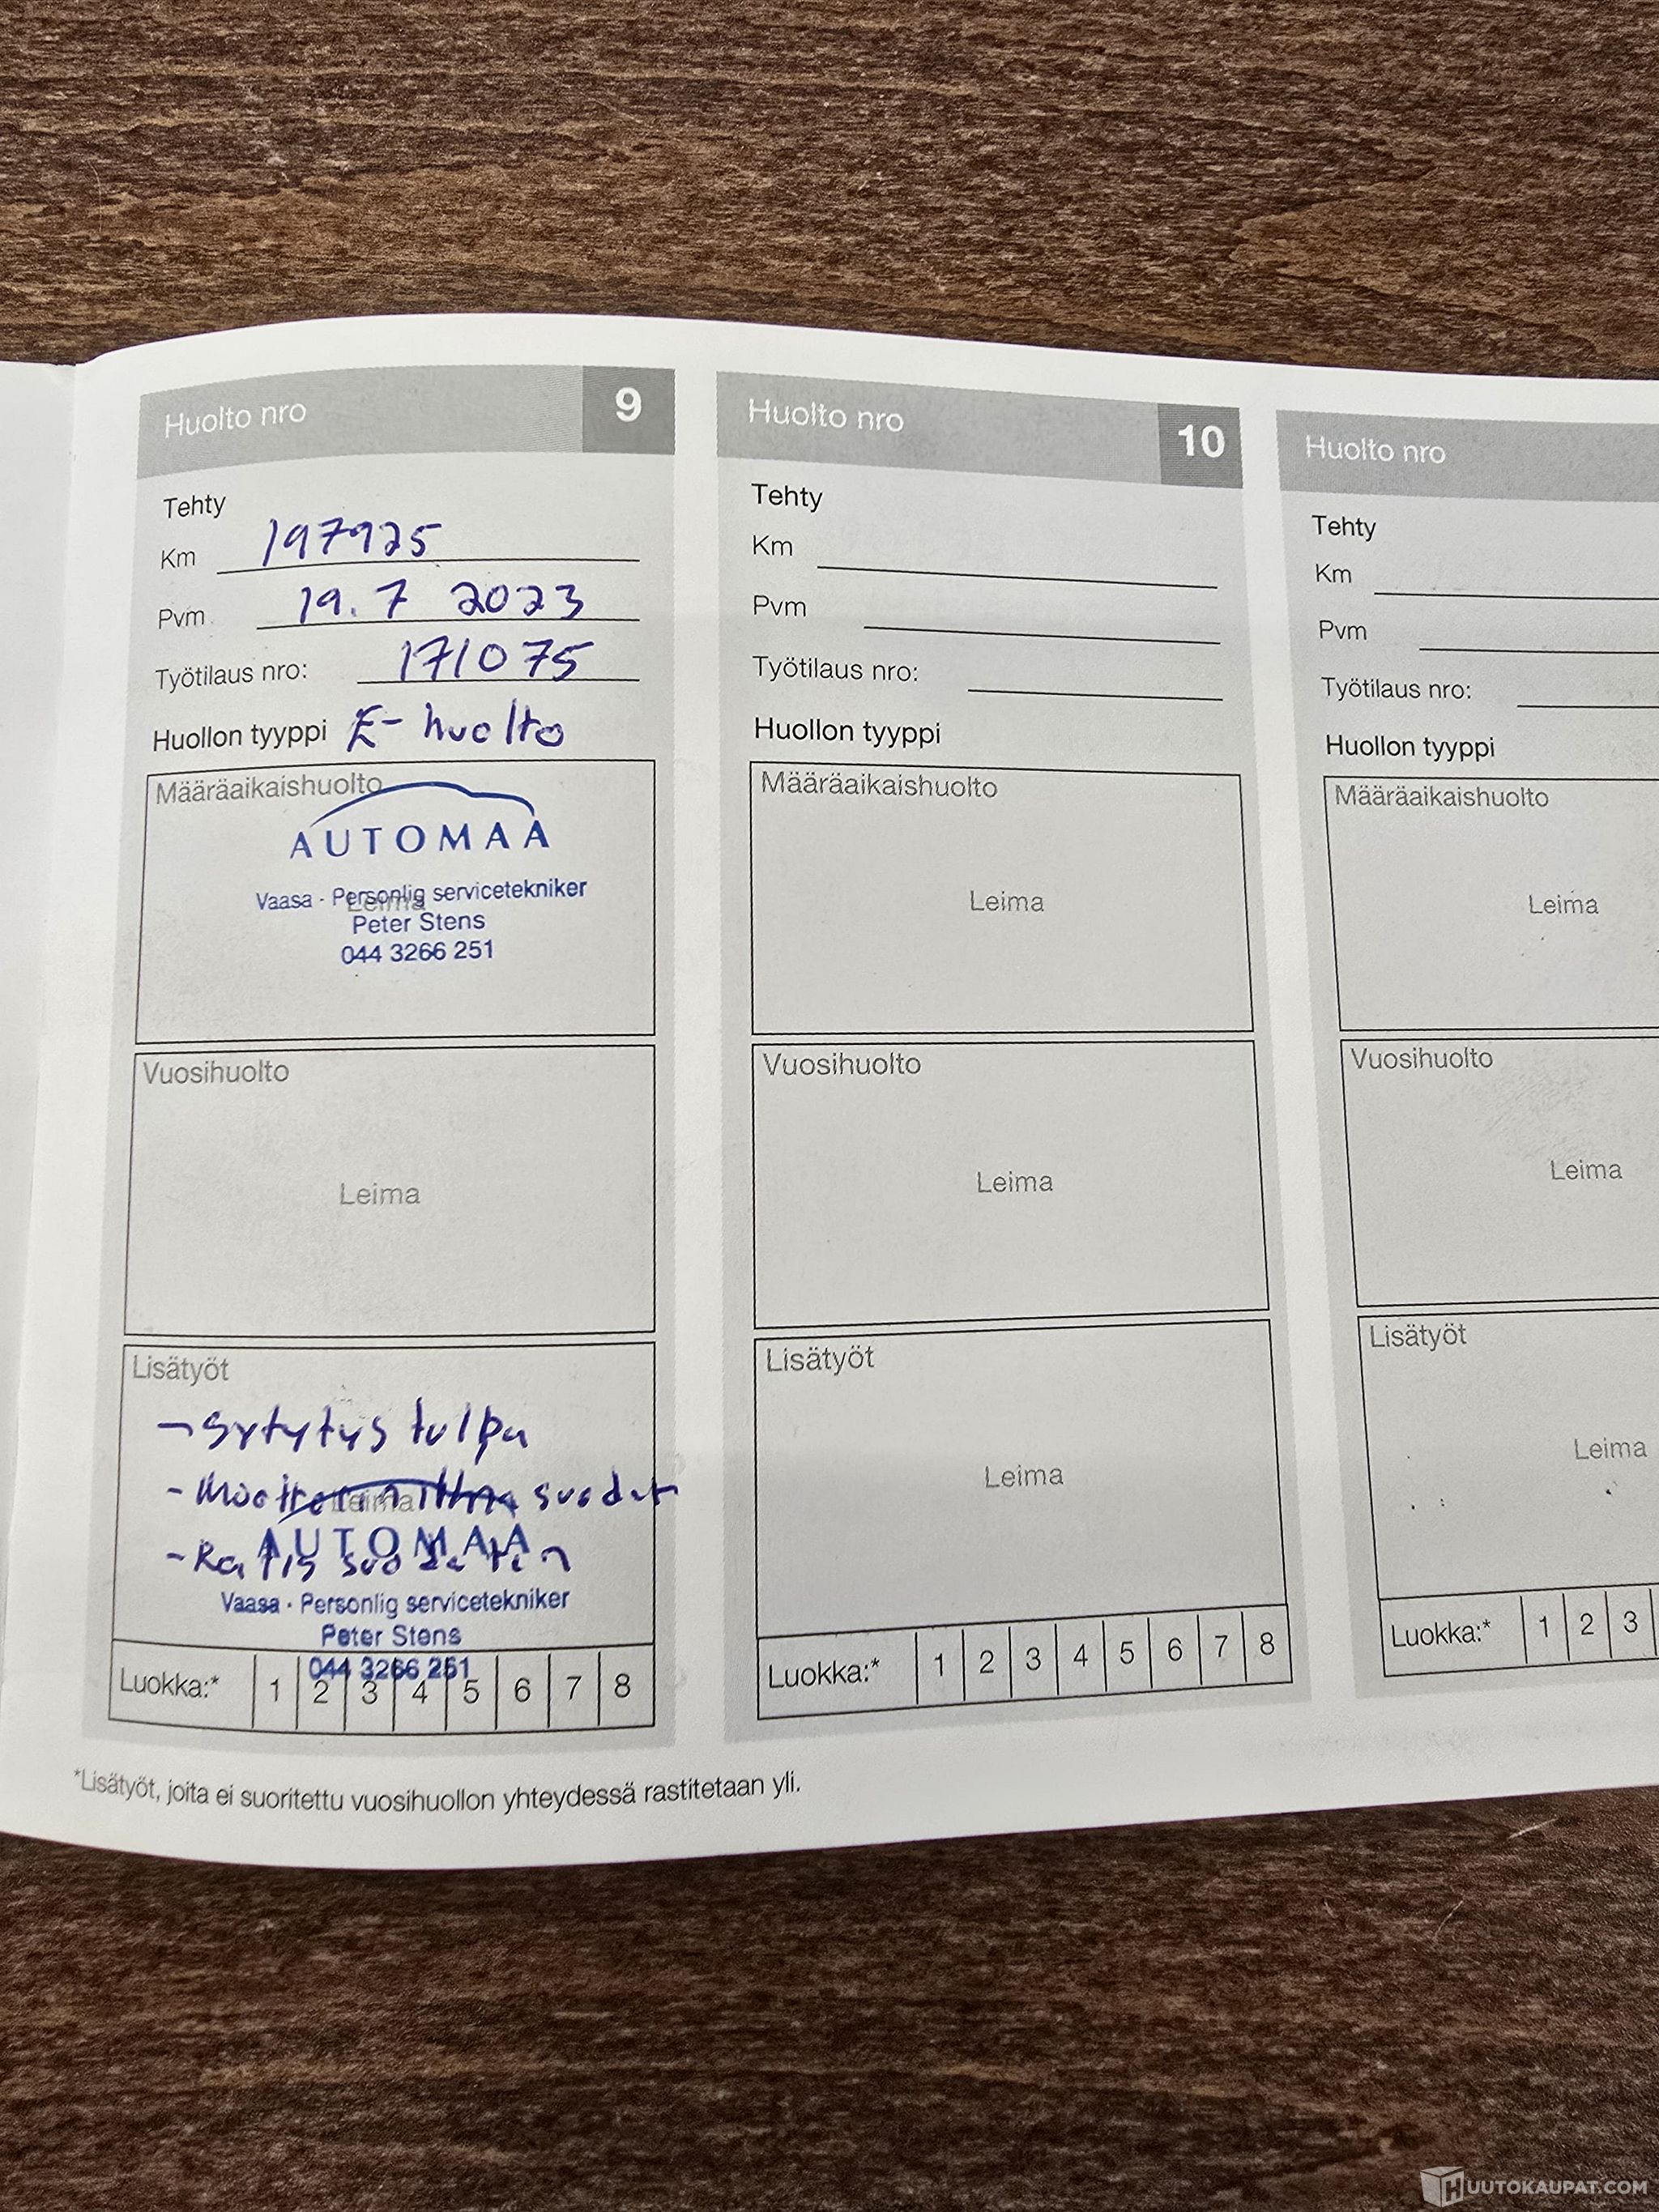 Huolto nro 9
Tehty
Km 197925
Pvm 19.7 2023
Työtilaus nro: 171075
Huollon tyyppi E-huolto
Määräaikaishuolto
AUTOMAA
Leima
Vaasa · Personlig servicetekniker
Peter Stens
044 3266 251
Vuosihuolto
Leima
Lisätyöt
- sytytys tulpa
- Moottorin ilma suodat
Leima
- Ra suodatin
AUTOMAA
Vaasa · Personlig servicetekniker
Peter Stens
044 3266 251
Luokka:* 1 2 3 4 5 6 7 8
Huolto nro 10
Tehty
Km
Pvm
Työtilaus nro:
Huollon tyyppi
Määräaikaishuolto
Leima
Vuosihuolto
Leima
Lisätyöt
Leima
Luokka:* 1 2 3 4 5 6 7 8
Huolto nro
Tehty
Km
Pvm
Työtilaus nro:
Huollon tyyppi
Määräaikaishuolto
Leima
Vuosihuolto
Leima
Lisätyöt
Leima
Luokka:* 1 2 3
*Lisätyöt, joita ei suoritettu vuosihuollon yhteydessä rastitetaan yli.
HUUTOKAUPAT.COM